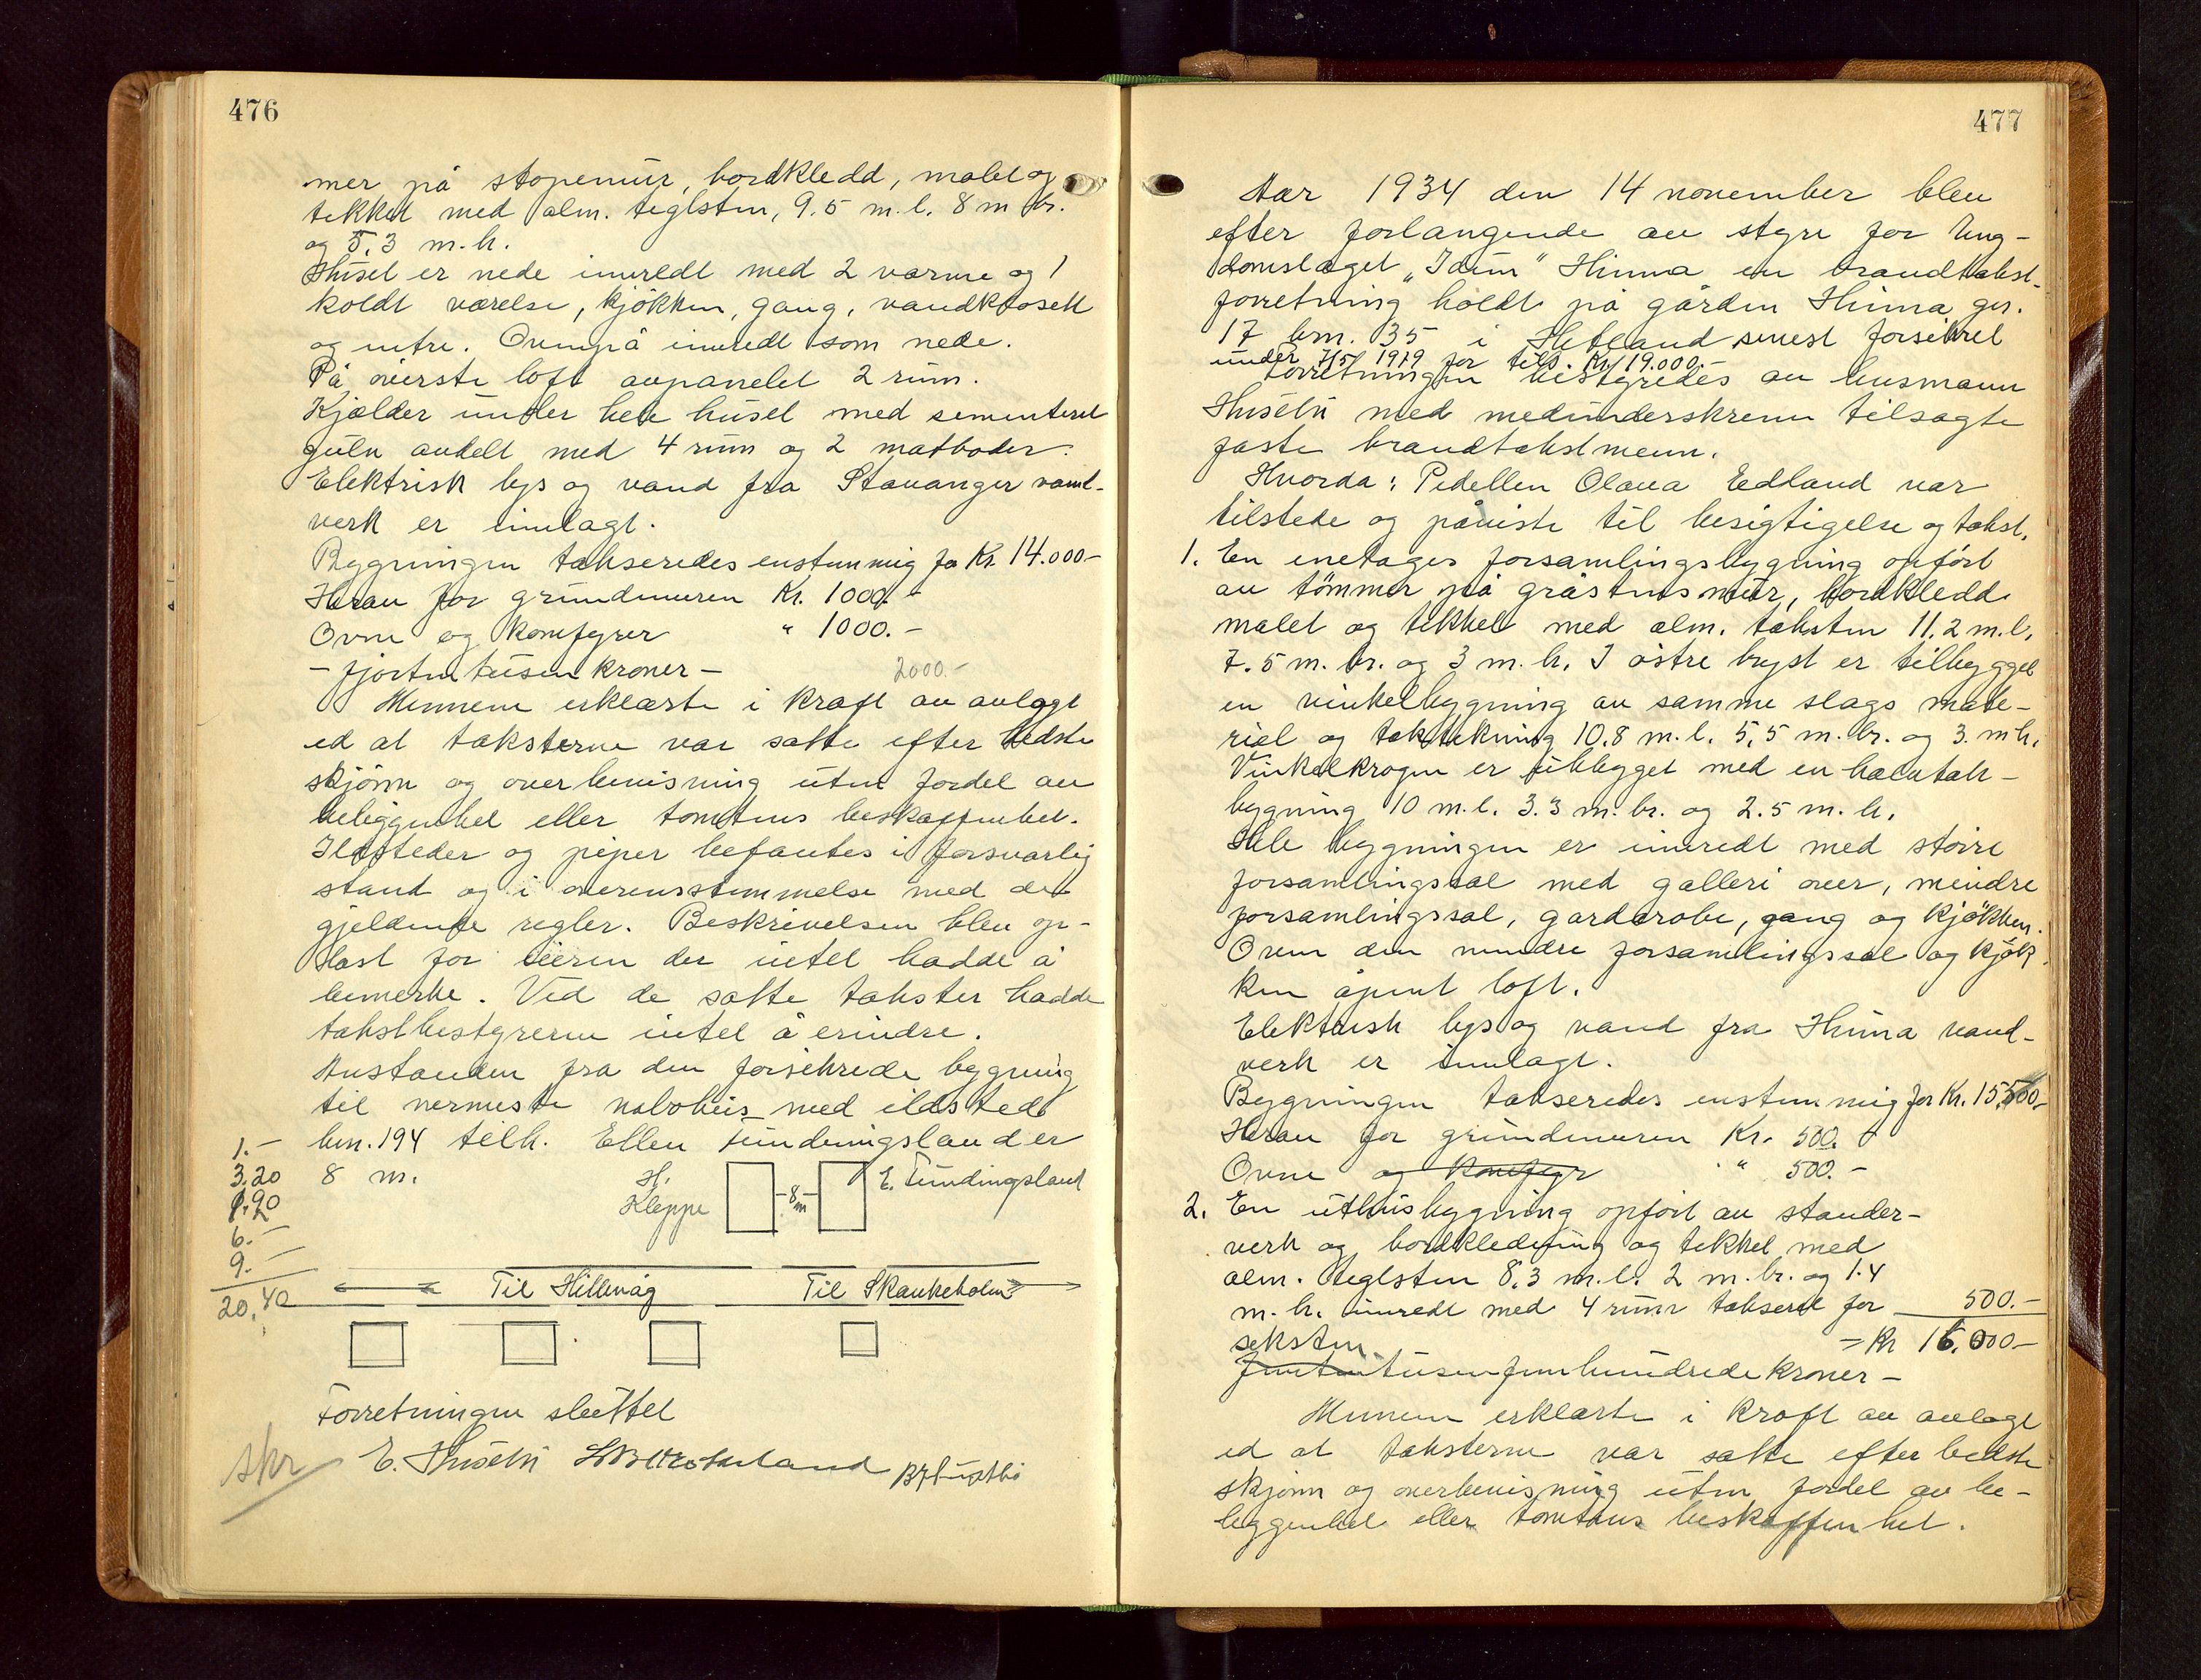 476
mer på stopemur, bordkledd, malet og
tekket med alm. teglsten, 9.5 m.l. 8 m br.
og 5,3 m.h.
Huset er nede innredt med 2 varme og 1
koldt værelse, kjøkken, gang, vandklosett
og entre. Ovenpå innredt som nede.
På øverste loft avpanelet 2 rum.
Kjælder under hele huset med sementeret
gulv avdelt med 4 rum og 2 matboder.
Elektrisk lys og vand fra Stavanger vand-
verk er innlagt.
Bygningen takseredes enstemmig for Kr. 14.000-
Herav for grundmuren Kr. 1000.-
Ovne og komfyrer " 1000.-
- fjorten tusen kroner - 2000.-
Mennene erklærte i kraft av avlagt
ed at taksterne var satte efter bedste
skjønn og overbevisning uten fordel av
beliggenhet eller tomtens beskaffenhet.
Ildsteder og piper befantes i forsvarlig
stand og i overensstemmelse med de
gjeldende regler. Beskrivelsen blev op-
læst for eieren der intet hadde å
bemerke. Ved de satte takster hadde
takstbestyreren intet å erindre.
Avstanden fra den forsikrede bygning
til nermeste nabohus med ildsted
bnr. 194 tilh. Ellen Tundingsland er
8 m.
1.-
3.20
1.20
6.-
9.-
20.40
H.
Kleppe
-8-
m
E. Tundingsland
Til Hillevåg Til Skankeholm
Forretningen sluttet
skr
E. Husebø
477
Aar 1934 den 14 november blev
efter forlangende av styre for Ung-
domslaget "Idun" Hinna en brandtakst-
forretning holdt på gården Hinna gr.
17 bnr. 35 i Hetland senest forsikret
under 7/5 1919 for tils. Kr. 19.000.-
Forretningen bestyredes av lensmann
Husebø med medunderskrevne tilsagte
faste brandtakstmenn.
Hvorda: Pedellen Olava Edland var
tilstede og påviste til besigtigelse og takst.
1. En enetages forsamlingsbygning opført
av tömmer på gråstensmur, bordkledd
malet og tekket med alm. taksten 11.2 m.l.
7.5 m. br. og 3 m.h. I østre bryst er tilbygget
en vinkelbygning av samme slags mate-
rial og taktekning 10.8 m.l. 5,5 m. br. og 3. m h.
Vinkelkrogen er utbygget med en halvtak-
bygning 10 m.l. 3.3 m. br. og 2.5 m.h.
Hele bygningen er innredt med större
forsamlingssal med galleri over, mindre
forsamlingssal, garderobe, gang og kjøkken.
Oven den mindre forsamlingssal og kjøk-
ken åpent loft.
Elektrisk lys og vand fra Hinna vand-
verk er innlagt.
Bygningen takseredes enstemmig for Kr. 15.500-
Herav for grundmuren Kr. 500.-
Ovne og komfyr " 500.-
2. En uthusbygning opført av stander-
verk og bordkledning og tekket med
alm. teglsten 8,3 m.l. 2 m.br. og 1.4
m.h. innredt med 4 rum taksert for 500.-
seksten = Kr 16.000-
femtentusenfemhundrede kroner -
Mennene erklærte i kraft av avlagt
ed at taksterne var satte efter bedste
skjønn og overbevisning uten fordel av be-
liggenhet eller tomtens beskaffenhet.